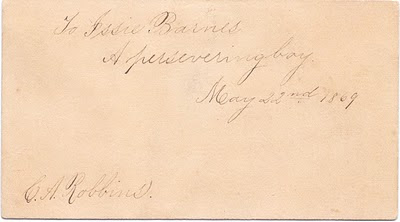 To Issie Barnes.
A persevering boy.
May 22nd 1869
C. A. Robbins.